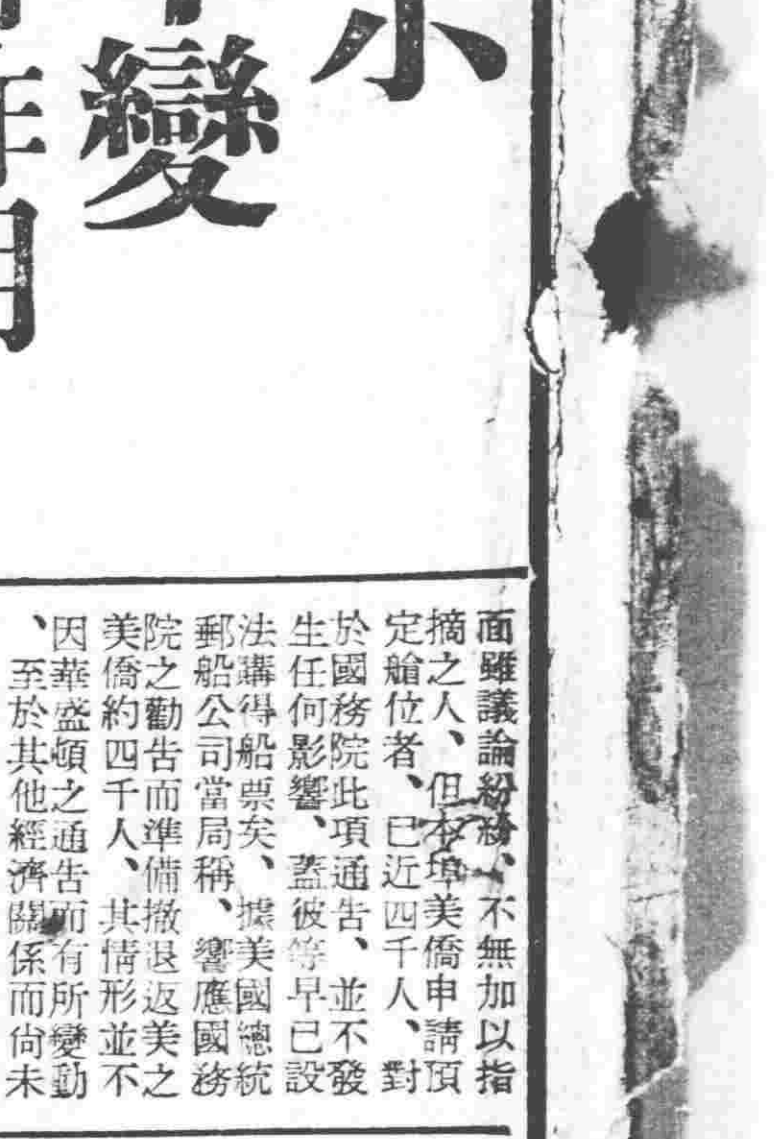 小
變
面雖議論紛紛、不無加以指
摘之人、但本埠美僑申請預
定艙位者、已近四千人、對
於國務院此項通告、並不發
生任何影響、蓋彼等早已設
法購得船票矣、據美國總統
郵船公司當局稱、響應國務
院之勸告而準備撤退返美之
美僑約四千人、其情形並不
因華盛頓之通告而有所變動
、至於其他經濟關係而尙未